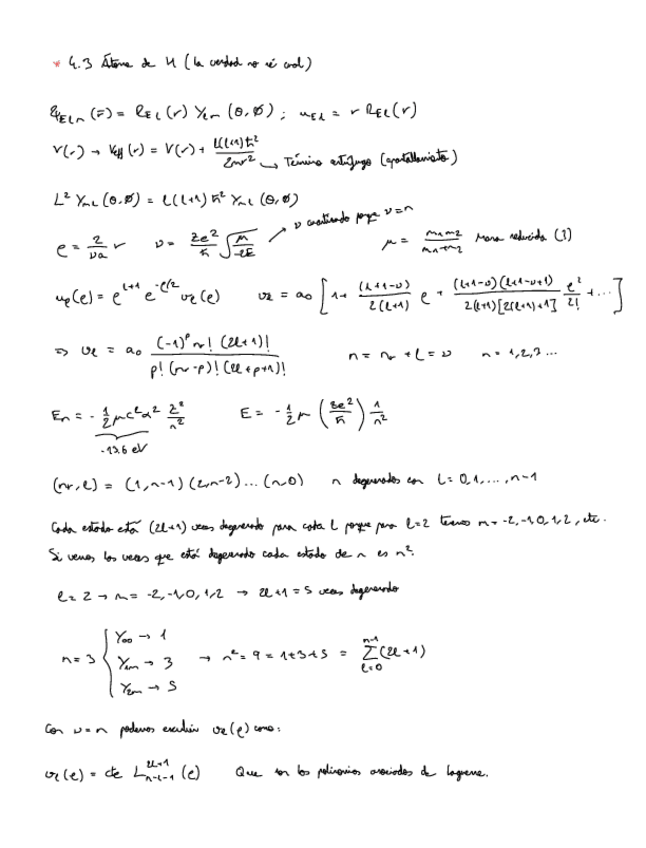 * 4.3 Átomo de H (la verdad no sé cual)
Ψ_{Elm}(r̄) = R_{El}(r) Y_{lm}(θ,φ) ; u_{El} = r R_{El}(r)
V(r) → V_{eff}(r) = V(r) + l(l+1)ħ²/2mr² → Término centrífugo (apantallamiento)
L² Y_{ml}(θ,φ) = l(l+1) ħ² Y_{ml}(θ,φ)
ρ = 2/νa r   ν = ze²/ħ √(μ/-2E) → ν cuantizado porque ν=n   μ = m₁m₂/m₁+m₂ Masa reducida (1)
u_l(ρ) = ρ^{l+1} e^{-ρ/2} v_l(ρ)   v_l = a₀ [1 + (l+1-ν)/2(l+1) ρ + (l+1-ν)(l+1-ν+1)/2(l+1)[2(l+1)+1] ρ²/2! + ...]
⇒ v_l = a₀ (-1)^p nr! (2l+1)! / p! (nr-p)! (2l+p+1)!   n = nr + l = ν   n = 1,2,3...
E_n = - 1/2 μc²α² z²/n²   E = - 1/2 μ (ze²/ħ) 1/n²
-13.6 eV
(nr, l) = (1,n-1) (2,n-2) ... (n,0)   n degenerados con l = 0,1,...,n-1
Cada estado está (2l+1) veces degenerado para cada l porque para l=2 tenemos m = -2,-1,0,1,2, etc.
Si vemos las veces que está degenerado cada estado de n es n².
l = 2 → m = -2,-1,0,1,2 → 2l+1 = 5 veces degenerado
n = 3 { Y₀₀ → 1
Y₁ₘ → 3 → n² = 9 = 1+3+5 = Σ_{l=0}^{n-1} (2l+1)
Y₂ₘ → 5
Con ν=n podemos escribir v_l(ρ) como:
v_l(ρ) = cte L_{n-l-1}^{2l+1}(ρ)   Que son los polinomios asociados de Laguerre.